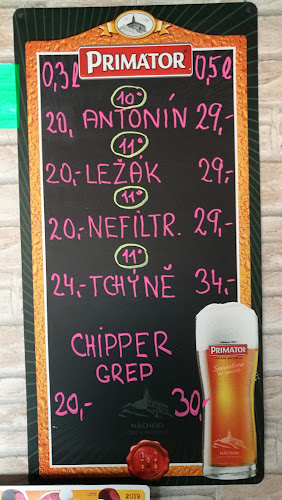 PRIMATOR
0,3l 0,5l
10°
20, ANTONÍN 29,-
11°
20,- LEŽÁK 29,-
11°
20,- NEFILTR. 29,-
11°
24,- TCHÝNĚ 34,-
CHIPPER
GREP
20,- 30,-
PRIMATOR
NÁCHOD
2019